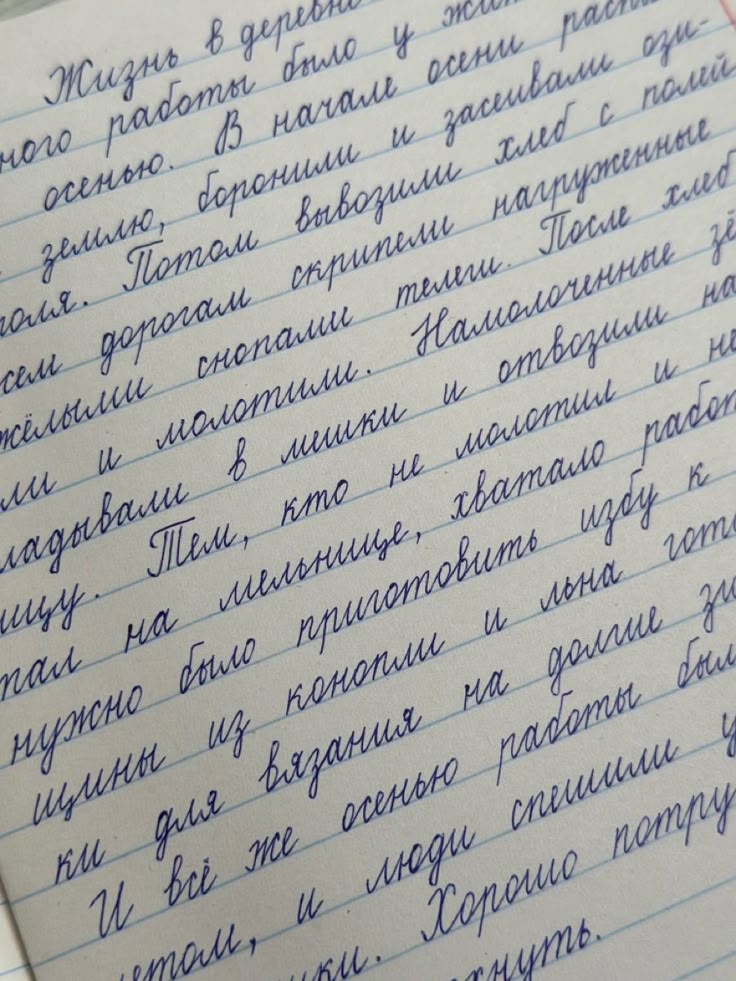 Жизнь в деревне
ного работы было у жит
осенью. В начале осени распа
землю, боронили и засеивали ози-
поля. Потом вывозили хлеб с полей
сем дорогам скрипели нагруженные
жёлыми снопами телеги. После хлеб
ли и молотили. Намолоченные зё
ладывали в мешки и отвозили на
ицу. Тем, кто не молотил и не
тал на мельнице, хватало работ
нужно было приготовить избу к
щины из конопли и льна гото
ки для вязания на долгие зи
И всё же осенью работы был
летом, и люди спешили у
ки. Хорошо потру
хнуть.